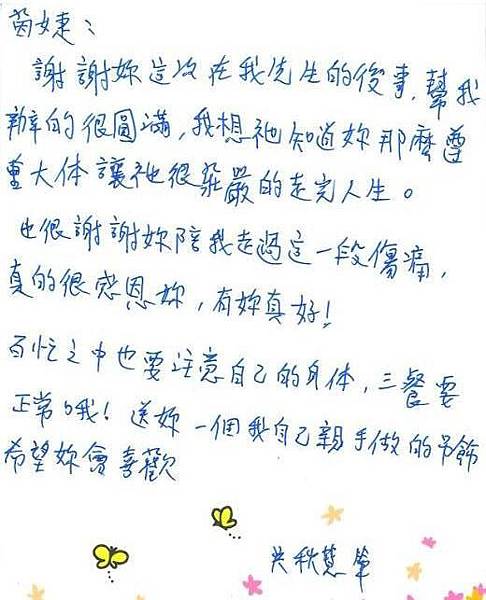 茵婕：
謝謝妳這次在我先生的後事，幫我
辦的很圓滿，我想祂知道妳那麼尊
重大体讓祂很莊嚴的走完人生。
也很謝謝妳陪我走過這一段傷痛，
真的很感恩妳，有妳真好！
百忙之中也要注意自己的身体，三餐要
正常哦！送妳一個我自己親手做的吊飾
希望妳會喜歡
秋慧筆